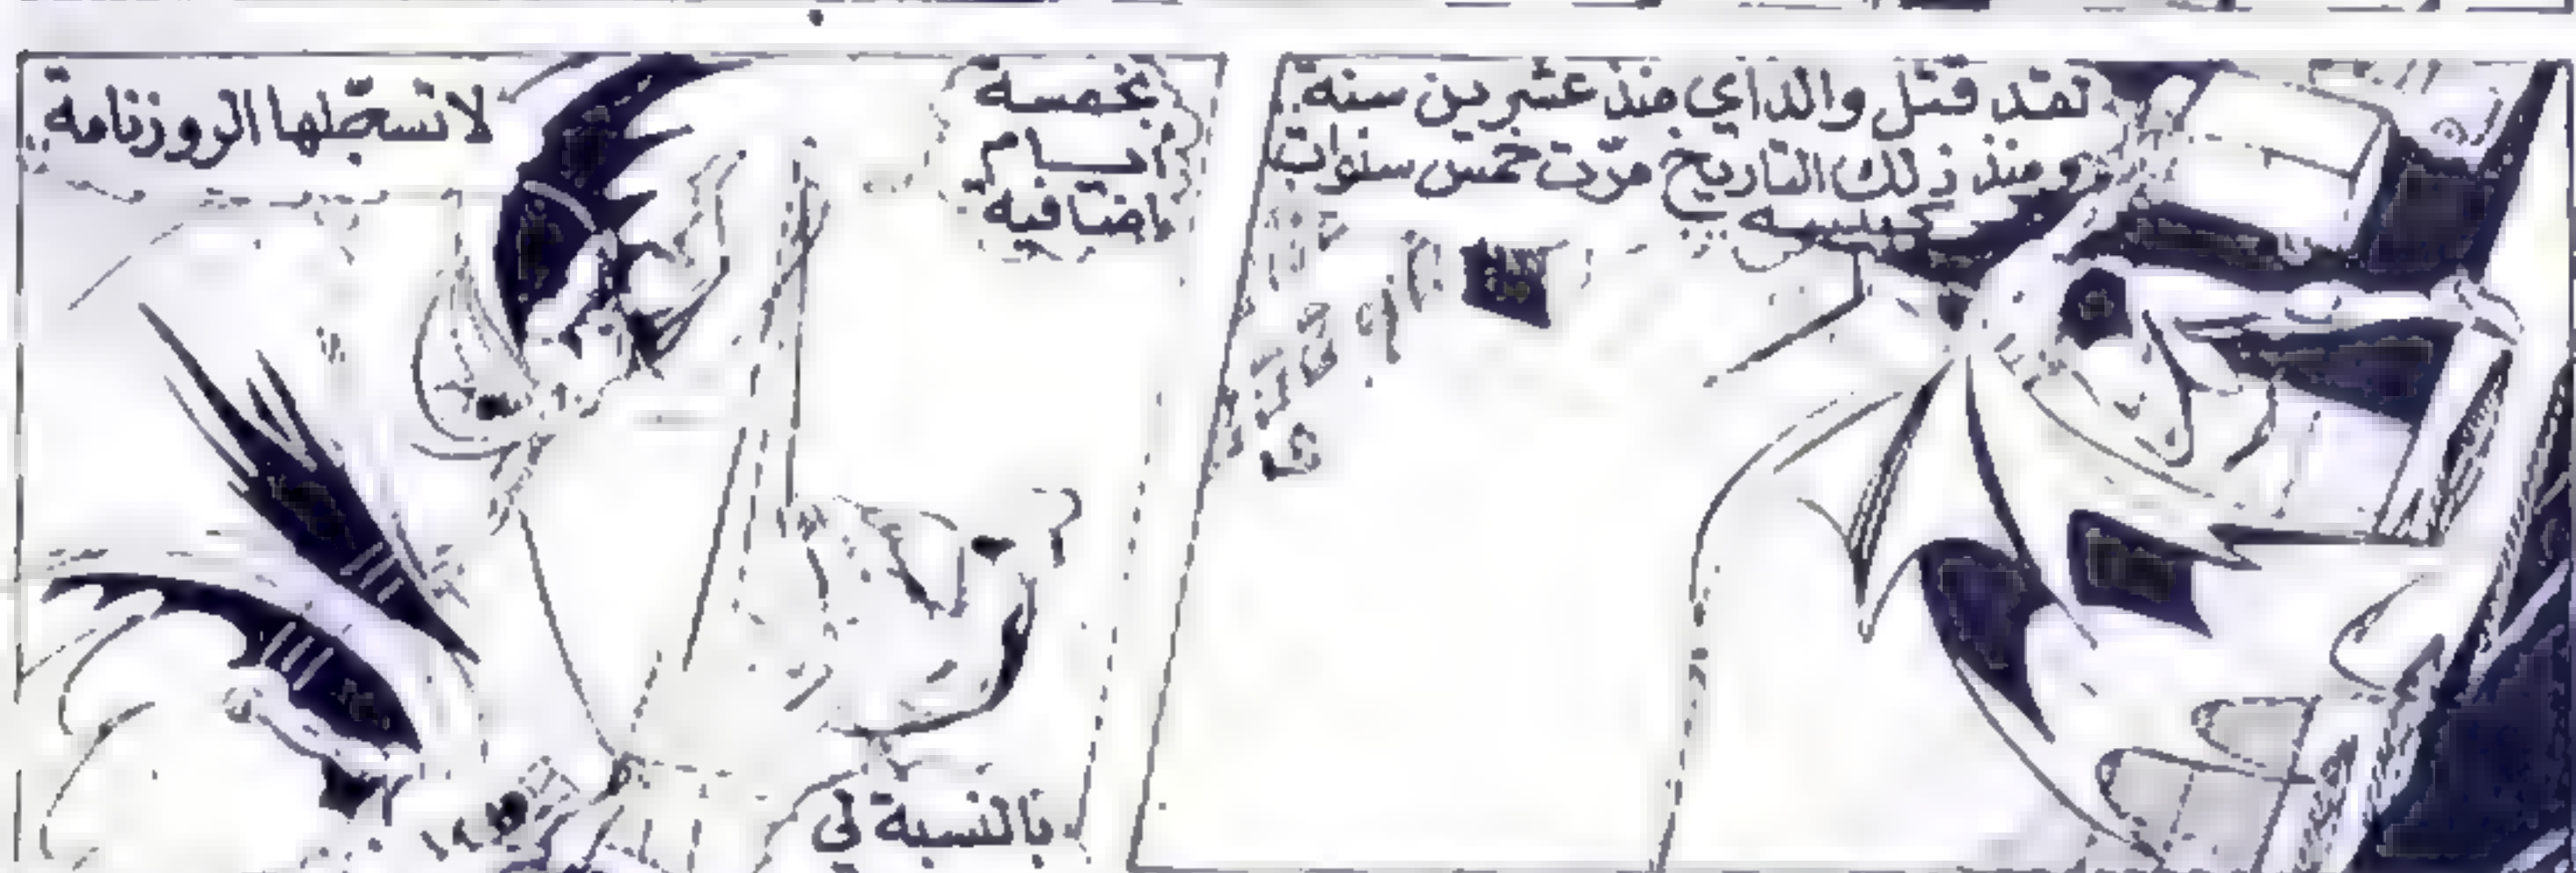 لقد قتل والداي منذ عشرين سنة
ومنذ ذلك التاريخ مرّت خمس سنوات
كبيسه
بخمسة
أيام
اضافيه
لا تسجّلها الروزنامة
بالنسبة لي